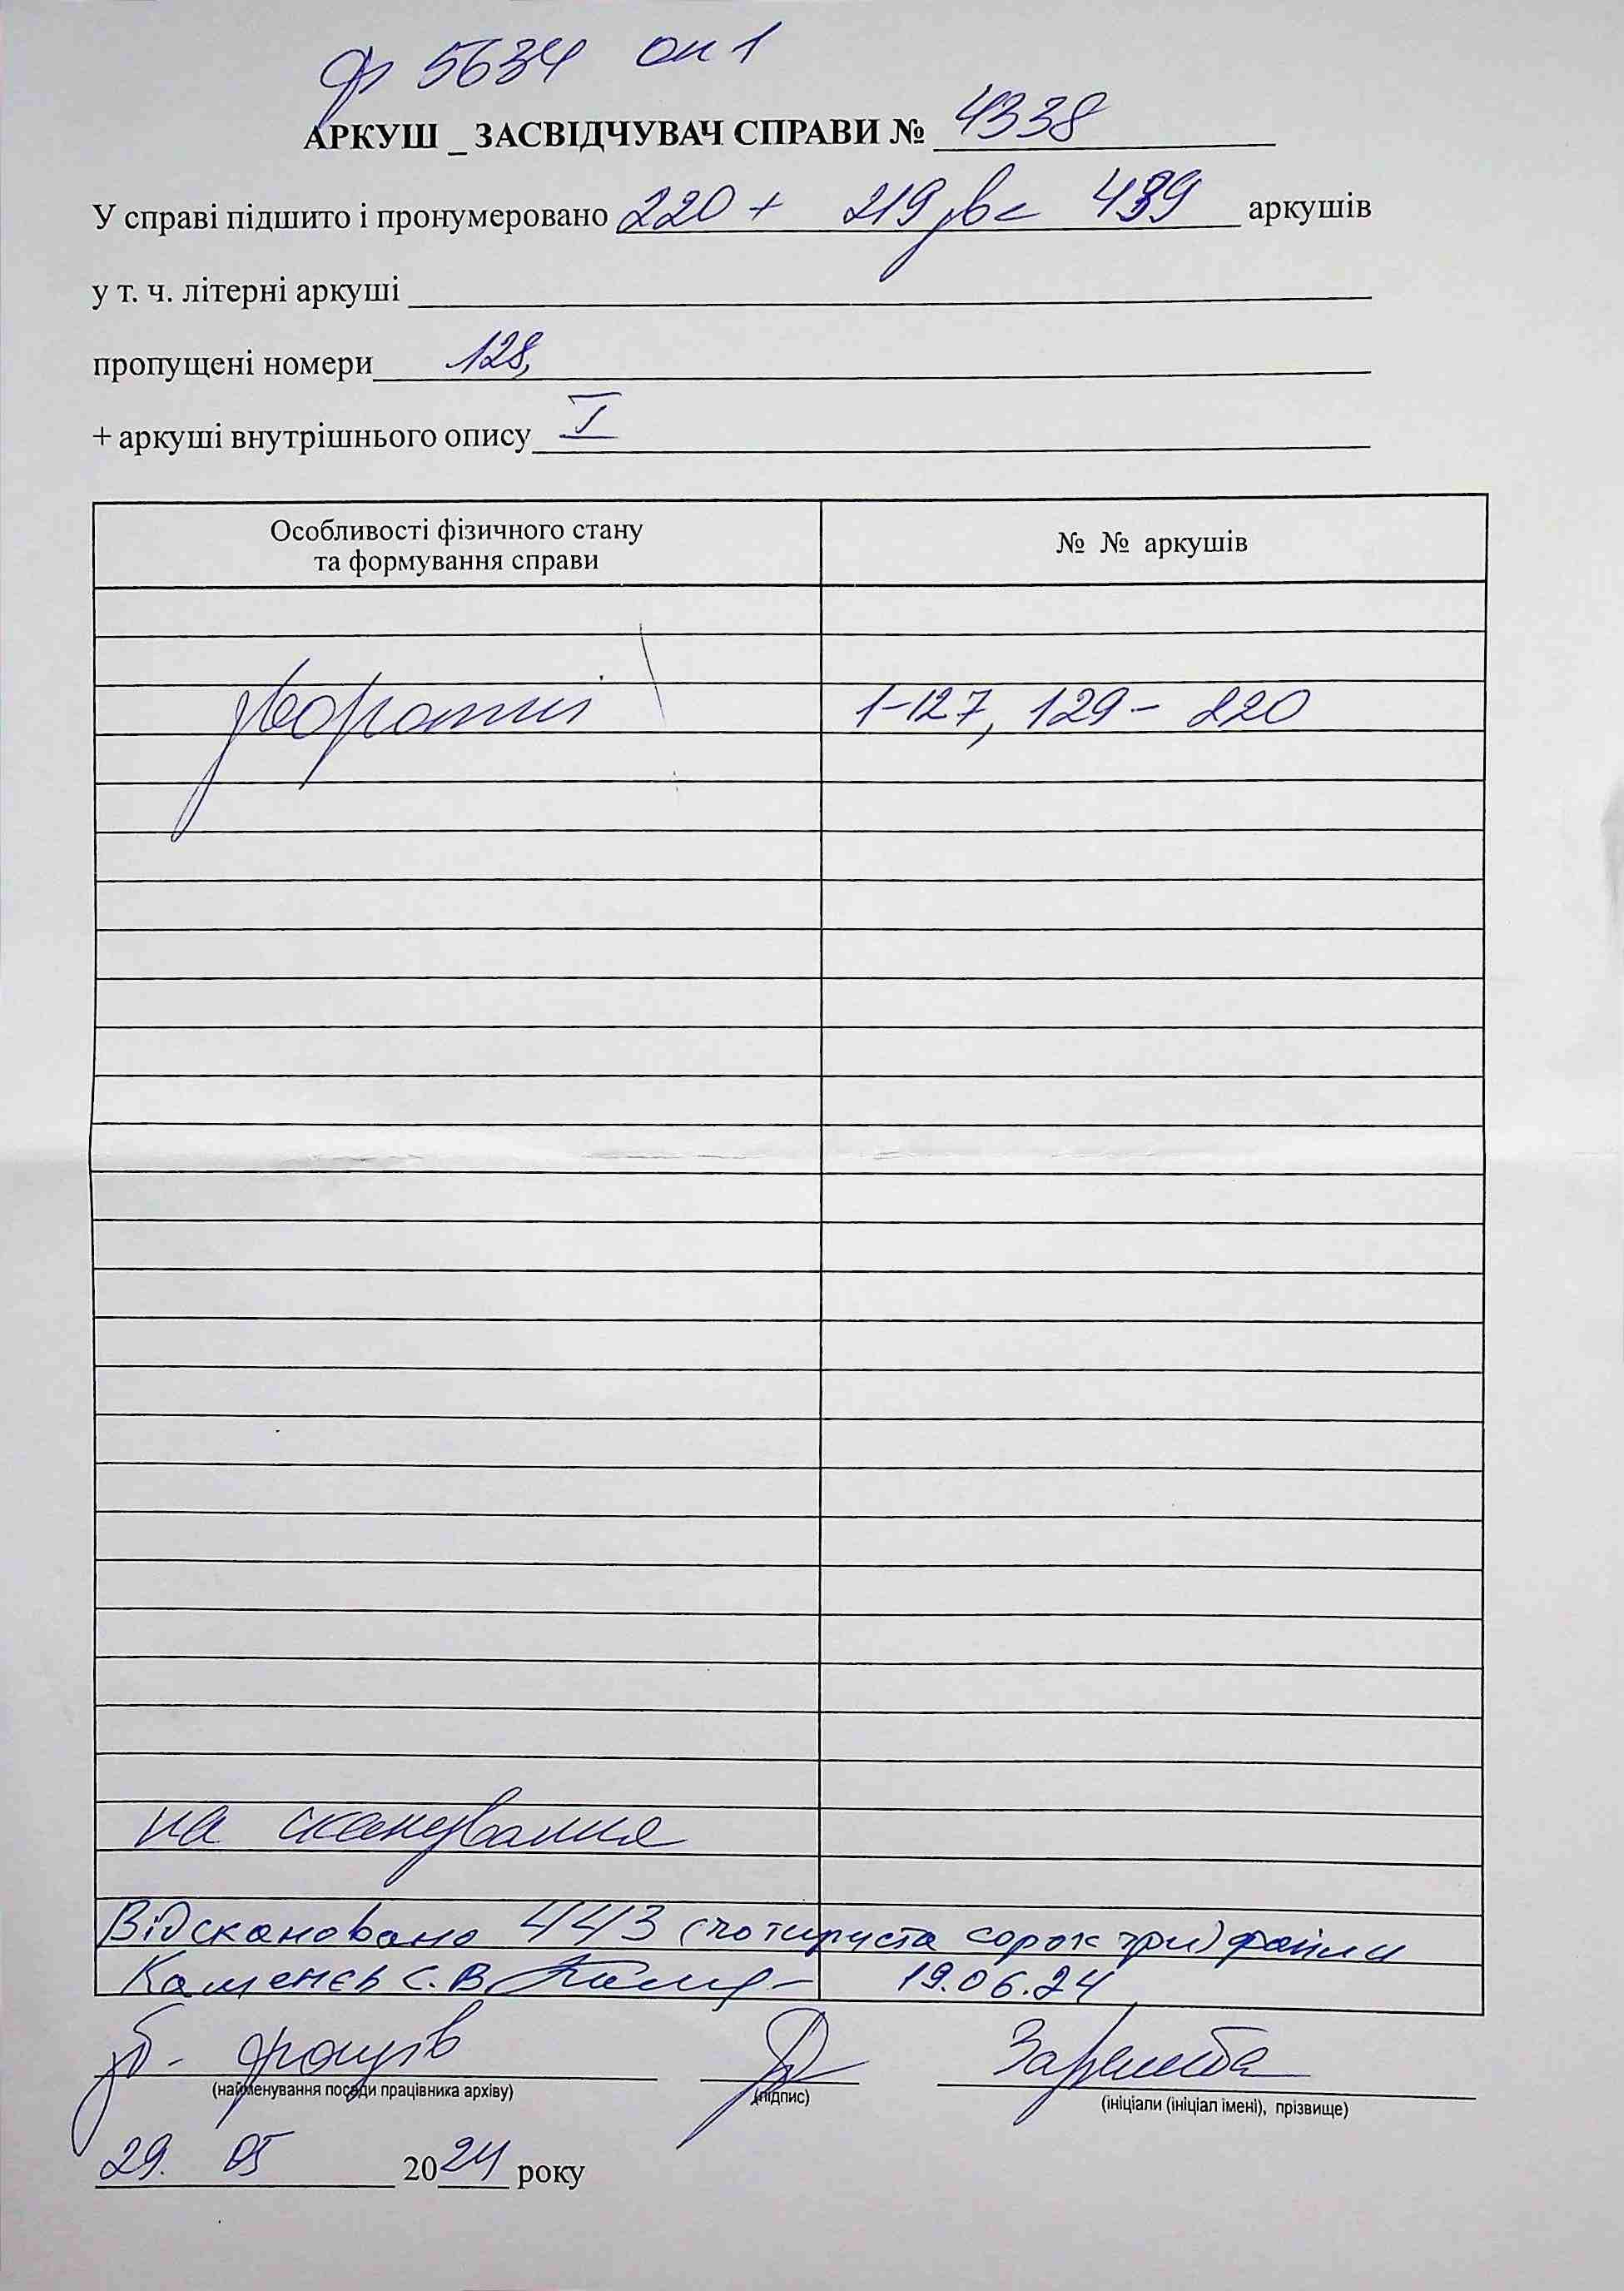 ф 5634 оп 1
АРКУШ _ ЗАСВІДЧУВАЧ СПРАВИ № 4338
У справі підшито і пронумеровано 220 + 219 зв = 439 аркушів
у т. ч. літерні аркуші
пропущені номери 128,
+ аркуші внутрішнього опису I
Особливості фізичного стану та формування справи
№ № аркушів
зворотні 1-127, 129 - 220
на сканування
Відскановано 443 (чотириста сорок три) файли
Каменєв С. В. 19.06.24
Заремба
(найменування посади працівника архіву) (підпис) (ініціали (ініціал імені), прізвище)
29. 05 2024 року